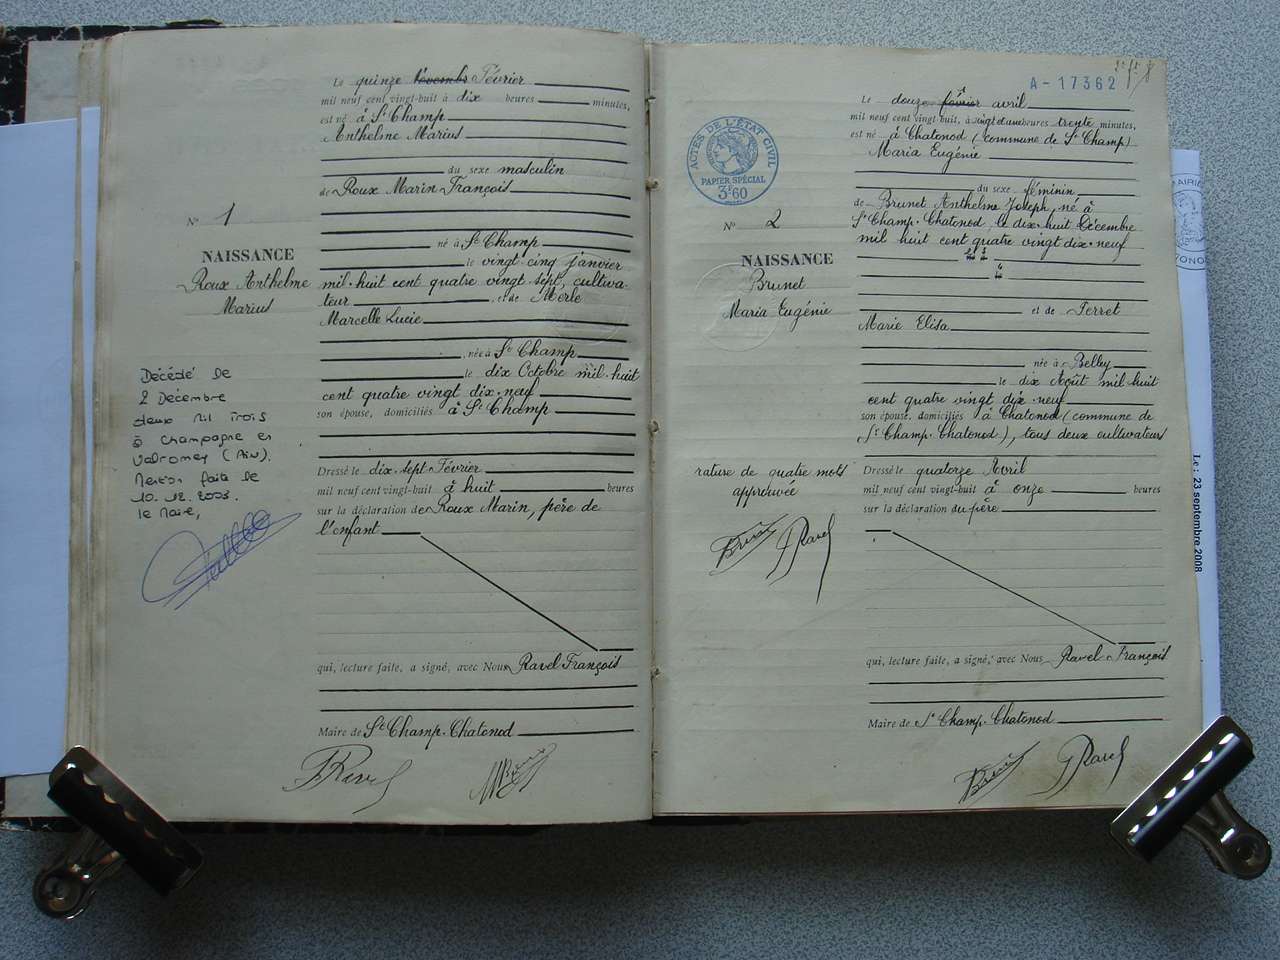 N° 1
NAISSANCE
Roux Anthelme
Marius
Décédé le
2 Décembre
deux mil trois
à Champagne en
Valromey (Ain).
Mention faite le
10.12.2003.
le Maire,
Le quinze Février
mil neuf cent vingt-huit à dix heures minutes,
est né à St Champ
Anthelme Marius
du sexe masculin
de Roux Marin François
né à St Champ
le vingt-cinq janvier
mil-huit cent quatre vingt sept, cultiva-
teur et de Merle
Marcelle Lucie
née à St Champ
le dix Octobre mil-huit
cent quatre vingt dix-neuf
son épouse, domiciliés à St Champ
Dressé le dix-sept Février
mil neuf cent vingt-huit à huit heures
sur la déclaration de Roux Marin, père de
l'enfant
qui, lecture faite, a signé, avec Nous Ravel François
Maire de St Champ-Chatonod
Ravel
A-17362
ACTES DE L'ÉTAT CIVIL
PAPIER SPÉCIAL
3F60
N° 2
NAISSANCE
Brunet
Maria Eugénie
rature de quatre mots
approuvée
Brunet Ravel
Le douze février avril
mil neuf cent vingt-huit, à vingt et une heures trente minutes,
est né à Chatonod (commune de St Champ)
Maria Eugénie
du sexe féminin
de Brunet Anthelme Joseph, né à
St Champ-Chatonod, le dix-huit Décembre
mil huit cent quatre vingt dix-neuf
et de Ferret
Marie Elisa
née à Belley
le dix Août mil huit
cent quatre vingt dix-neuf
son épouse, domiciliés à Chatonod (commune de
St Champ-Chatonod), tous deux cultivateurs
Dressé le quatorze Avril
mil neuf cent vingt-huit à onze heures
sur la déclaration du père
qui, lecture faite, a signé, avec Nous Ravel François
Maire de St Champ-Chatonod
Brunet Ravel
Le : 23 septembre 2008